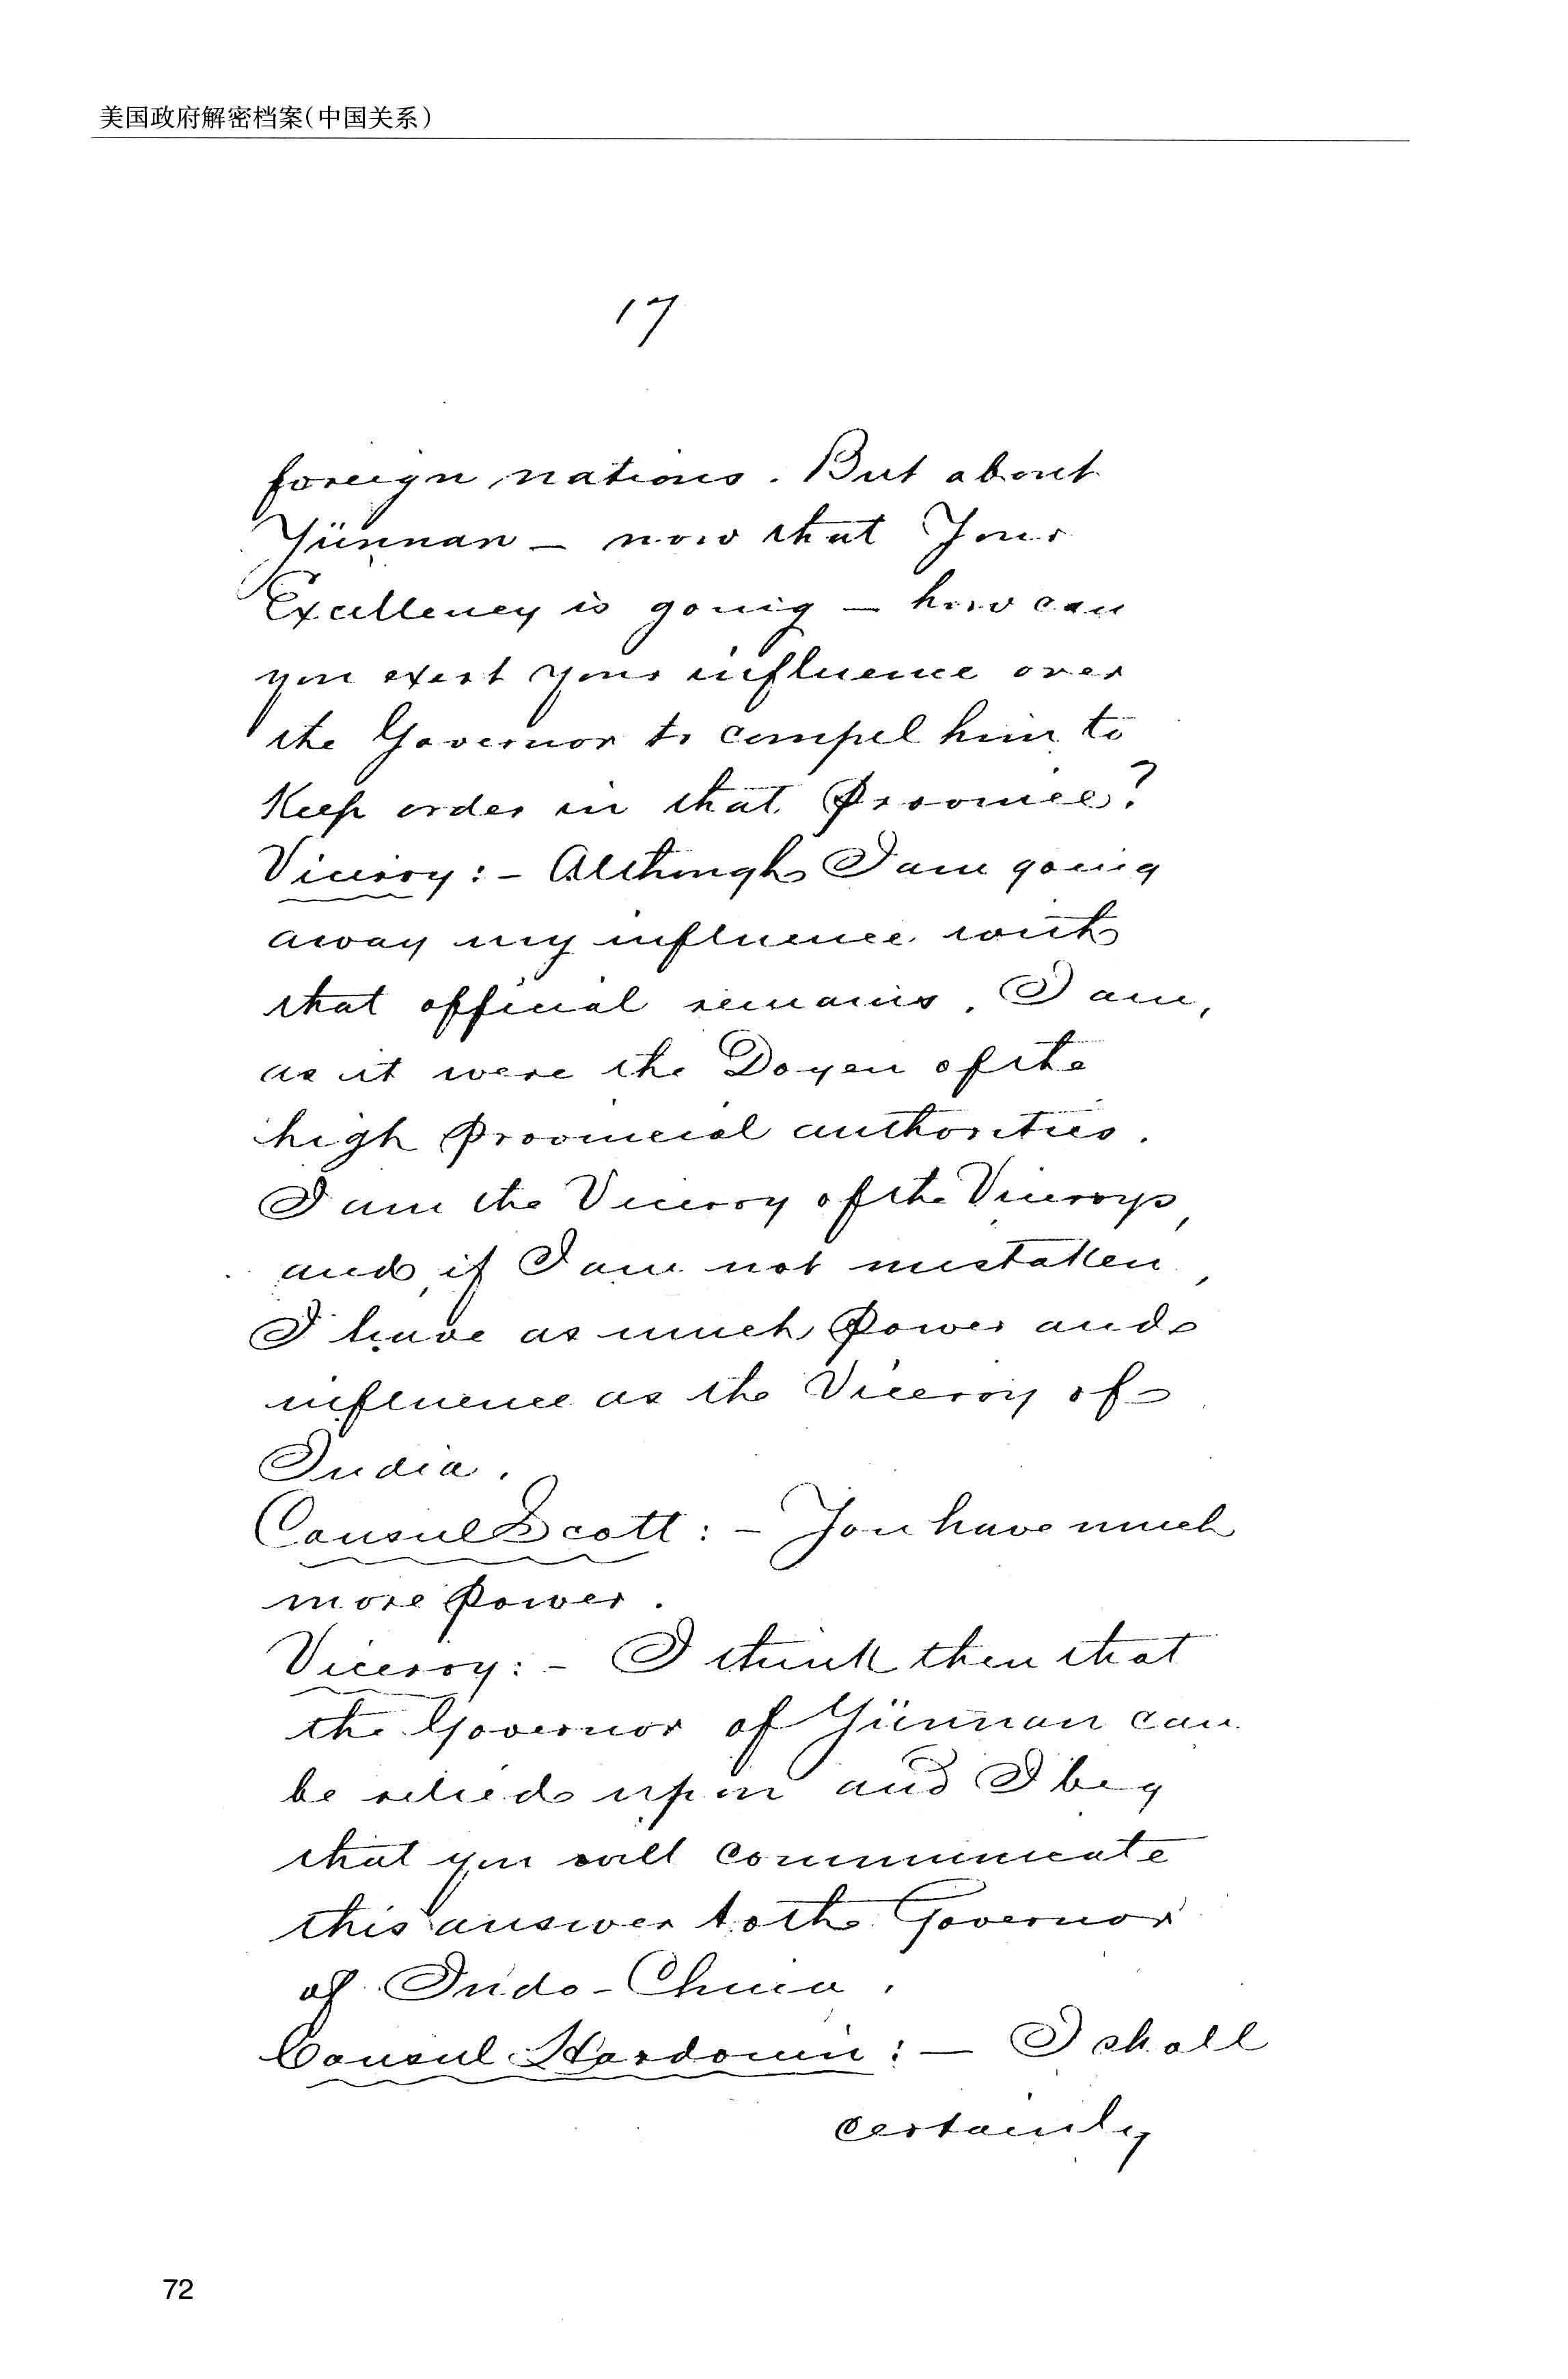 美国政府解密档案(中国关系)
17
foreign nations. But about
Yünnan — now that Your
Excellency is going — how can
you exert your influence over
the Governor to compel him to
Keep order in that Province?
Viceroy:- Although I am going
away my influence with
that official remains. I am,
as it were the Doyen of the
high Provincial authorities.
I am the Viceroy of the Viceroys,
and, if I am not mistaken,
I have as much Power and
influence as the Viceroy of
India.
Consul Scott:- You have much
more Power.
Viceroy:- I think then that
the Governor of Yünnan can
be relied upon and I beg
that you will communicate
this answer to the Governor
of Indo-China.
Consul Hardouin:— I shall
certainly
72